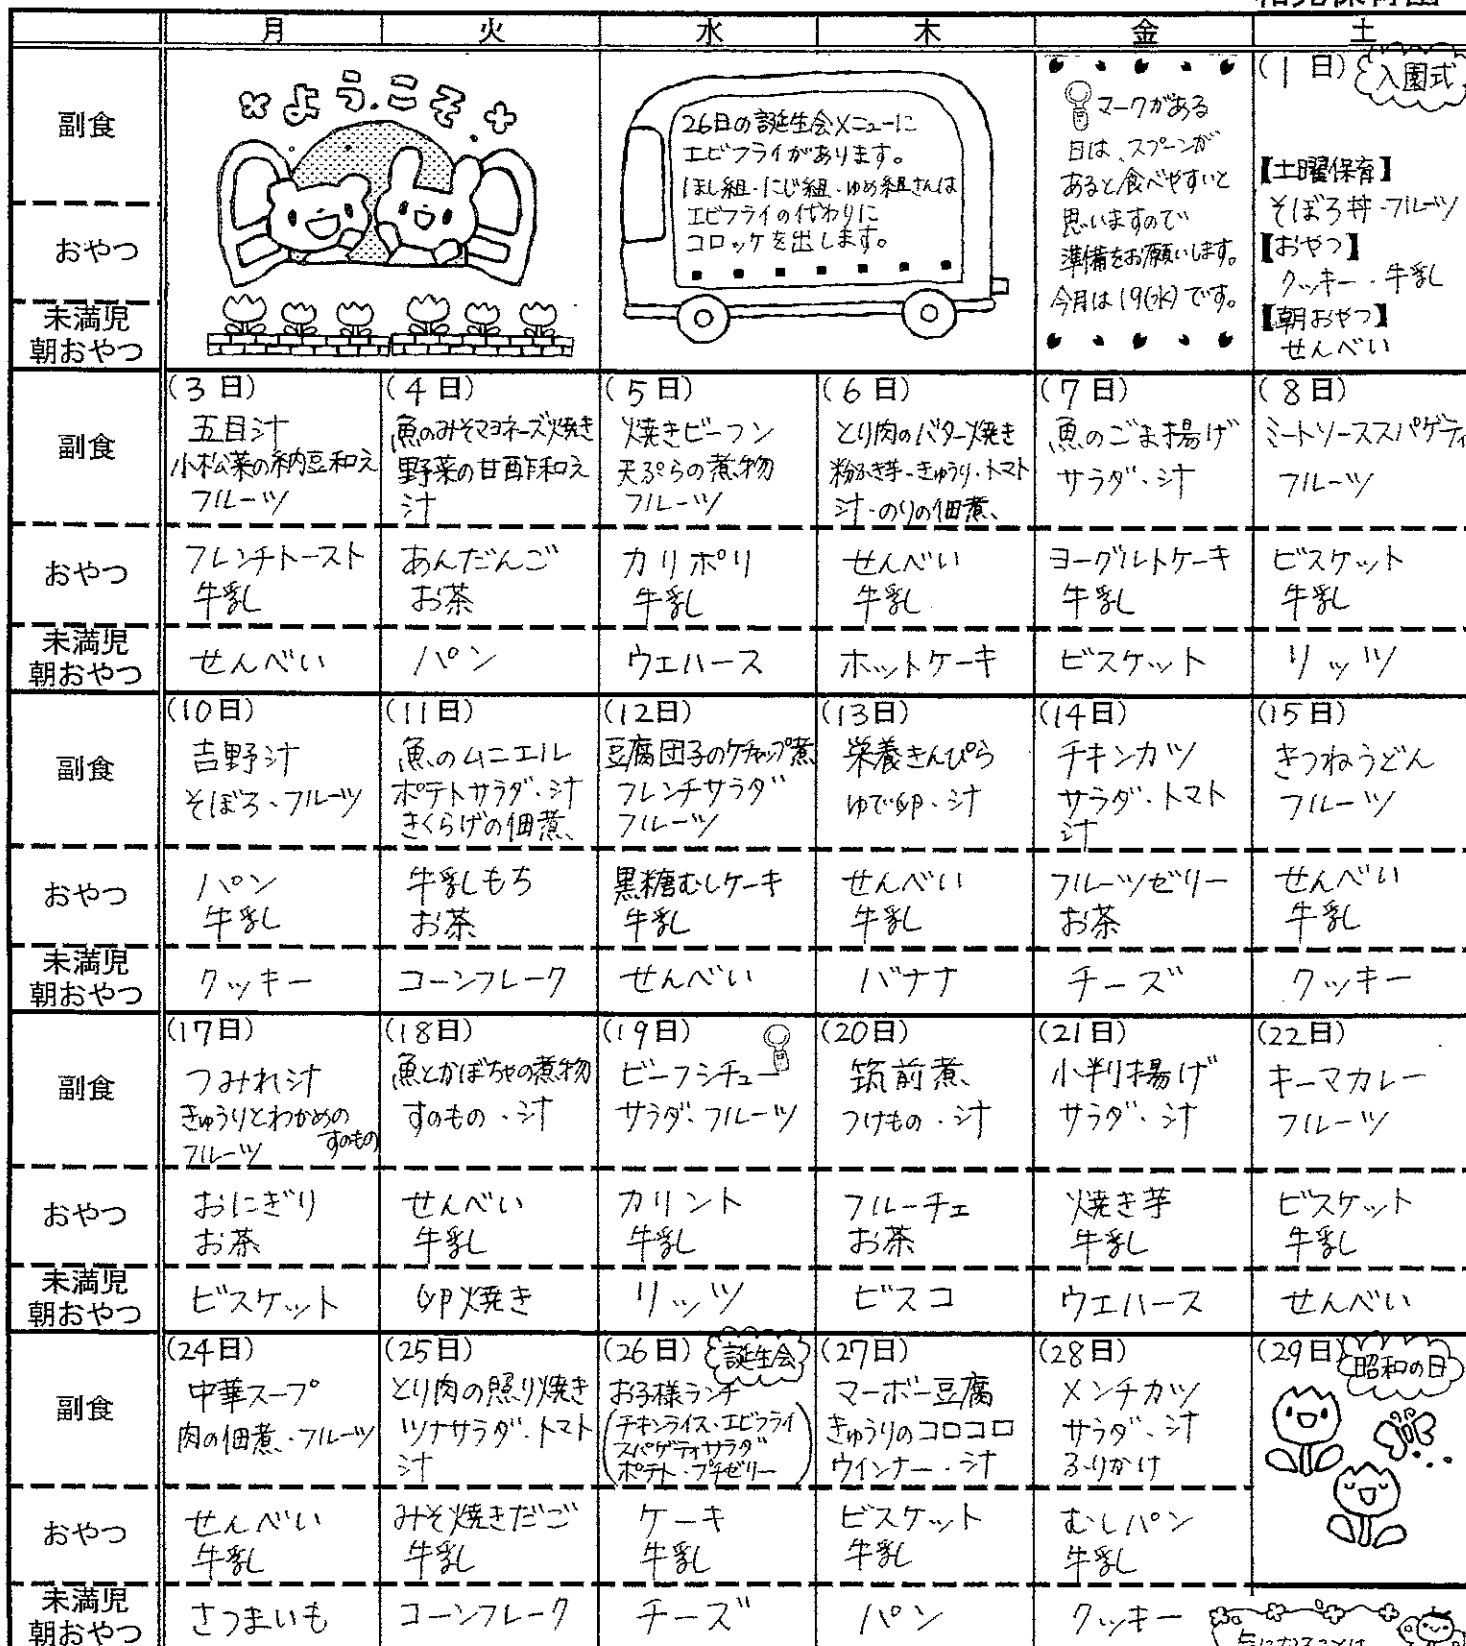 月 火 水 木 金 土
副食
おやつ
未満児
朝おやつ
ようこそ
26日の誕生会メニューに
エビフライがあります。
ほし組・にじ組・ゆめ組さんは
エビフライの代わりに
コロッケを出します。
マークがある
日は、スプーンが
あると食べやすいと
思いますので
準備をお願いします。
今月は19(水)です。
(1日) 入園式
【土曜保育】
そぼろ丼・フルーツ
【おやつ】
クッキー・牛乳
【朝おやつ】
せんべい
副食
(3日)
五目汁
小松菜の納豆和え
フルーツ
(4日)
魚のみそマヨネーズ焼き
野菜の甘酢和え
汁
(5日)
焼きビーフン
天ぷらの煮物
フルーツ
(6日)
とり肉のバター焼き
粉ふき芋・きゅうり・トマト
汁・のりの佃煮
(7日)
魚のごま揚げ
サラダ・汁
(8日)
ミートソーススパゲティ
フルーツ
おやつ
フレンチトースト
牛乳
あんだんご
お茶
カリポリ
牛乳
せんべい
牛乳
ヨーグルトケーキ
牛乳
ビスケット
牛乳
未満児
朝おやつ
せんべい
パン
ウエハース
ホットケーキ
ビスケット
リッツ
副食
(10日)
吉野汁
そぼろ・フルーツ
(11日)
魚のムニエル
ポテトサラダ・汁
きくらげの佃煮
(12日)
豆腐団子のケチャップ煮
フレンチサラダ
フルーツ
(13日)
栄養きんぴら
ゆで卵・汁
(14日)
チキンカツ
サラダ・トマト
汁
(15日)
きつねうどん
フルーツ
おやつ
パン
牛乳
牛乳もち
お茶
黒糖むしケーキ
牛乳
せんべい
牛乳
フルーツゼリー
お茶
せんべい
牛乳
未満児
朝おやつ
クッキー
コーンフレーク
せんべい
バナナ
チーズ
クッキー
副食
(17日)
つみれ汁
きゅうりとわかめの
すのもの
フルーツ
(18日)
魚とかぼちゃの煮物
すのもの・汁
(19日)
ビーフシチュー
サラダ・フルーツ
(20日)
筑前煮
つけもの・汁
(21日)
小判揚げ
サラダ・汁
(22日)
キーマカレー
フルーツ
おやつ
おにぎり
お茶
せんべい
牛乳
カリント
牛乳
フルーチェ
お茶
焼き芋
牛乳
ビスケット
牛乳
未満児
朝おやつ
ビスケット
卵焼き
リッツ
ビスコ
ウエハース
せんべい
副食
(24日)
中華スープ
肉の佃煮・フルーツ
(25日)
とり肉の照り焼き
ツナサラダ・トマト
汁
(26日) 誕生会
お子様ランチ
(チキンライス・エビフライ
スパゲティサラダ
ポテト・プチゼリー)
(27日)
マーボー豆腐
きゅうりのコロコロ
ウインナー・汁
(28日)
メンチカツ
サラダ・汁
ふりかけ
(29日) 昭和の日
おやつ
せんべい
牛乳
みそ焼きだご
牛乳
ケーキ
牛乳
ビスケット
牛乳
むしパン
牛乳
未満児
朝おやつ
さつまいも
コーンフレーク
チーズ
パン
クッキー